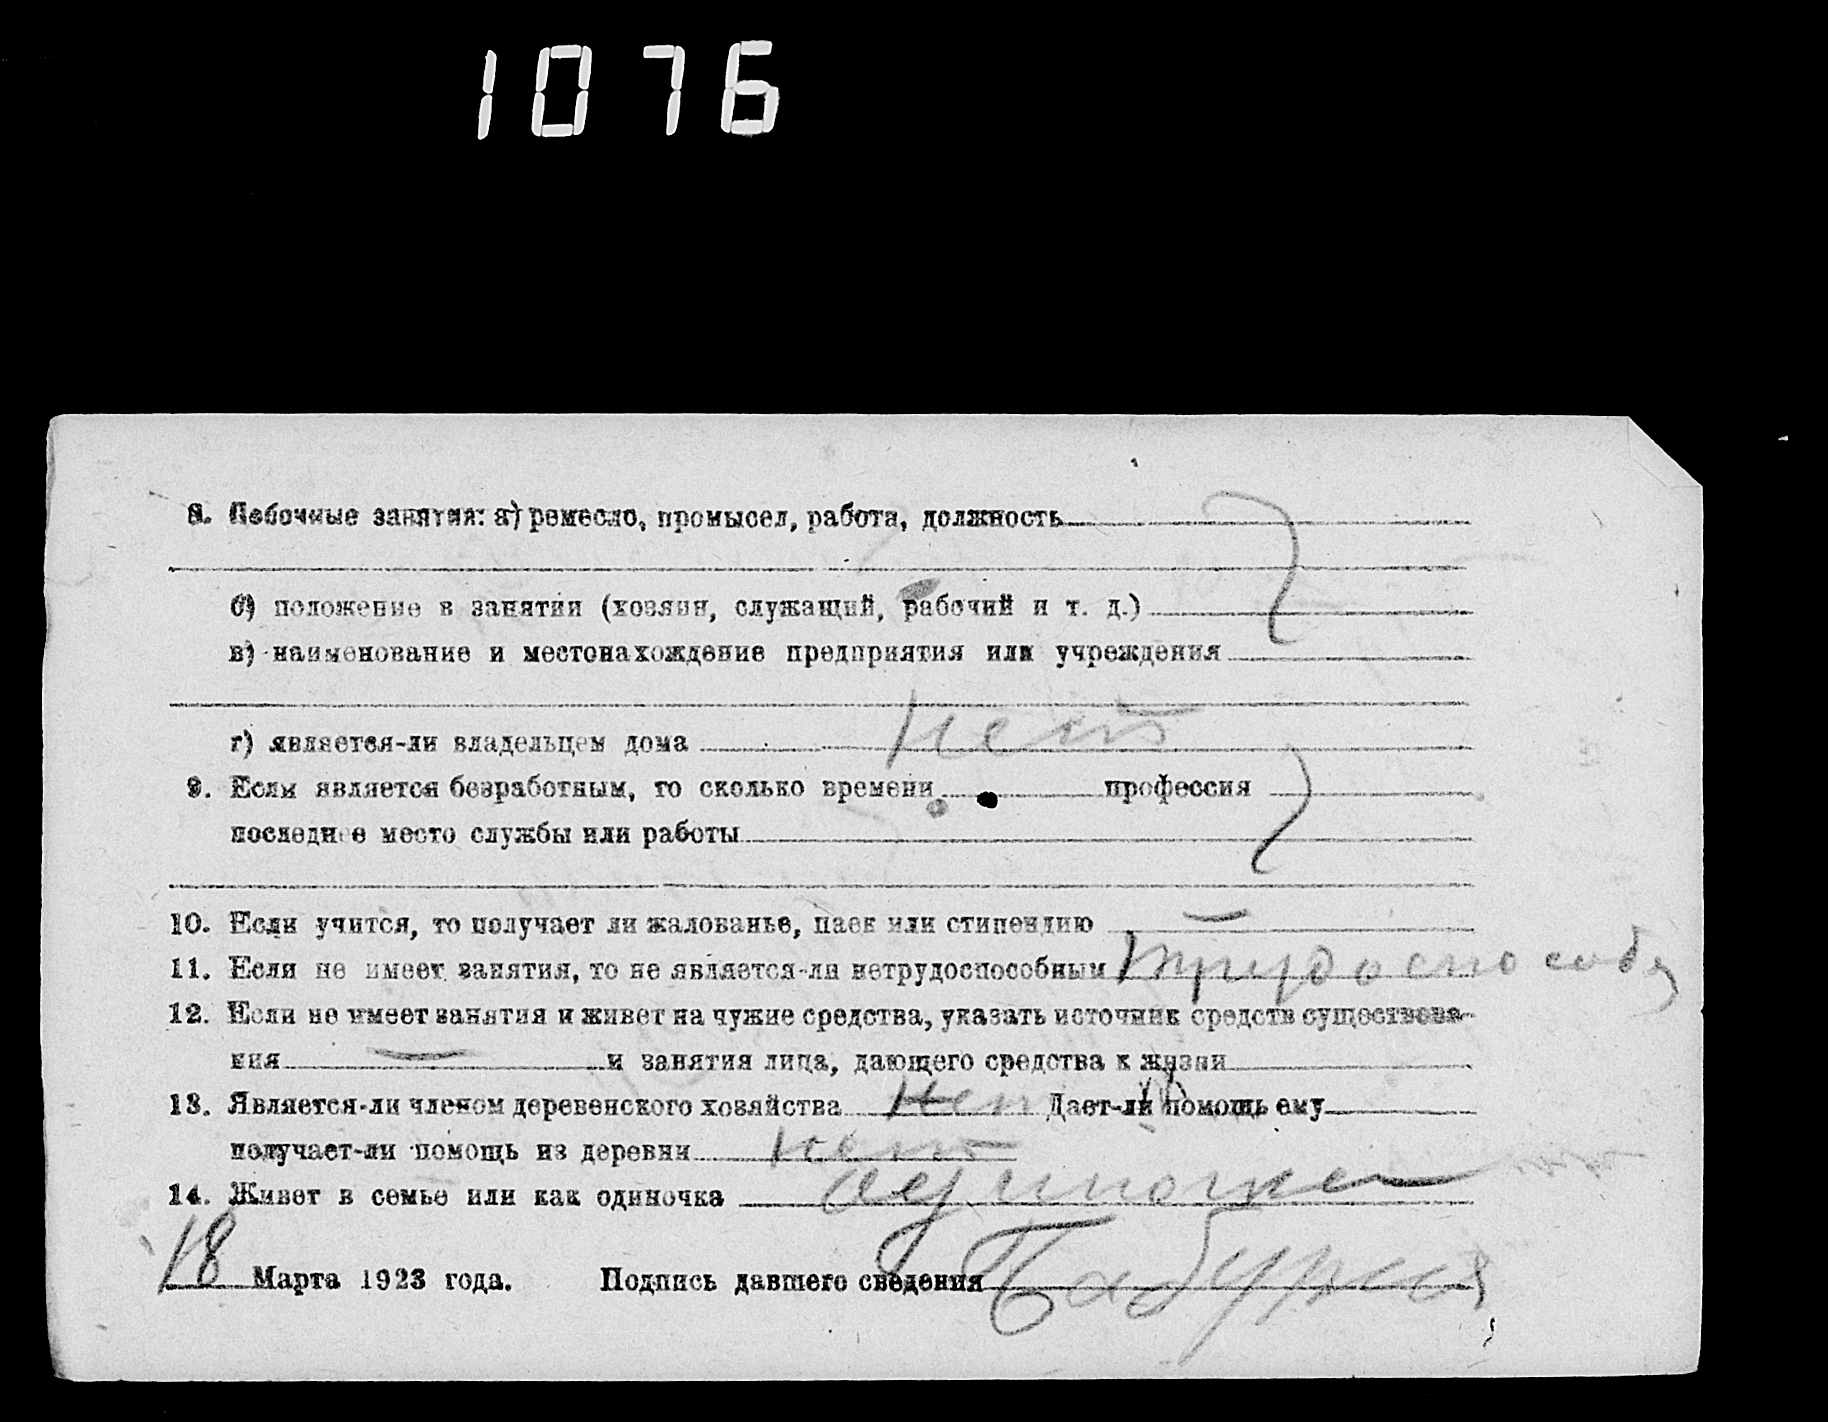 1076
8. Побочные занятия: а) ремесло, промысел, работа, должность
б) положение в занятии (хозяин, служащий, рабочий и т. д.)
в) наименование и местонахождение предприятия или учреждения
г) является-ли владельцем дома нет
9. Если является безработным, то сколько времени профессия
последнее место службы или работы
10. Если учится, то получает ли жалованье, паек или стипендию —
11. Если не имеет занятия, то не является-ли нетрудоспособным трудоспособ
12. Если не имеет занятия и живет на чужие средства, указать источник средств существова-
ния — и занятия лица, дающего средства к жизни
13. Является-ли членом деревенского хозяйства нет Дает-ли помощь ему
получает-ли помощь из деревни нет
14. Живет в семье или как одиночка
18 Марта 1923 года. Подпись давшего сведения